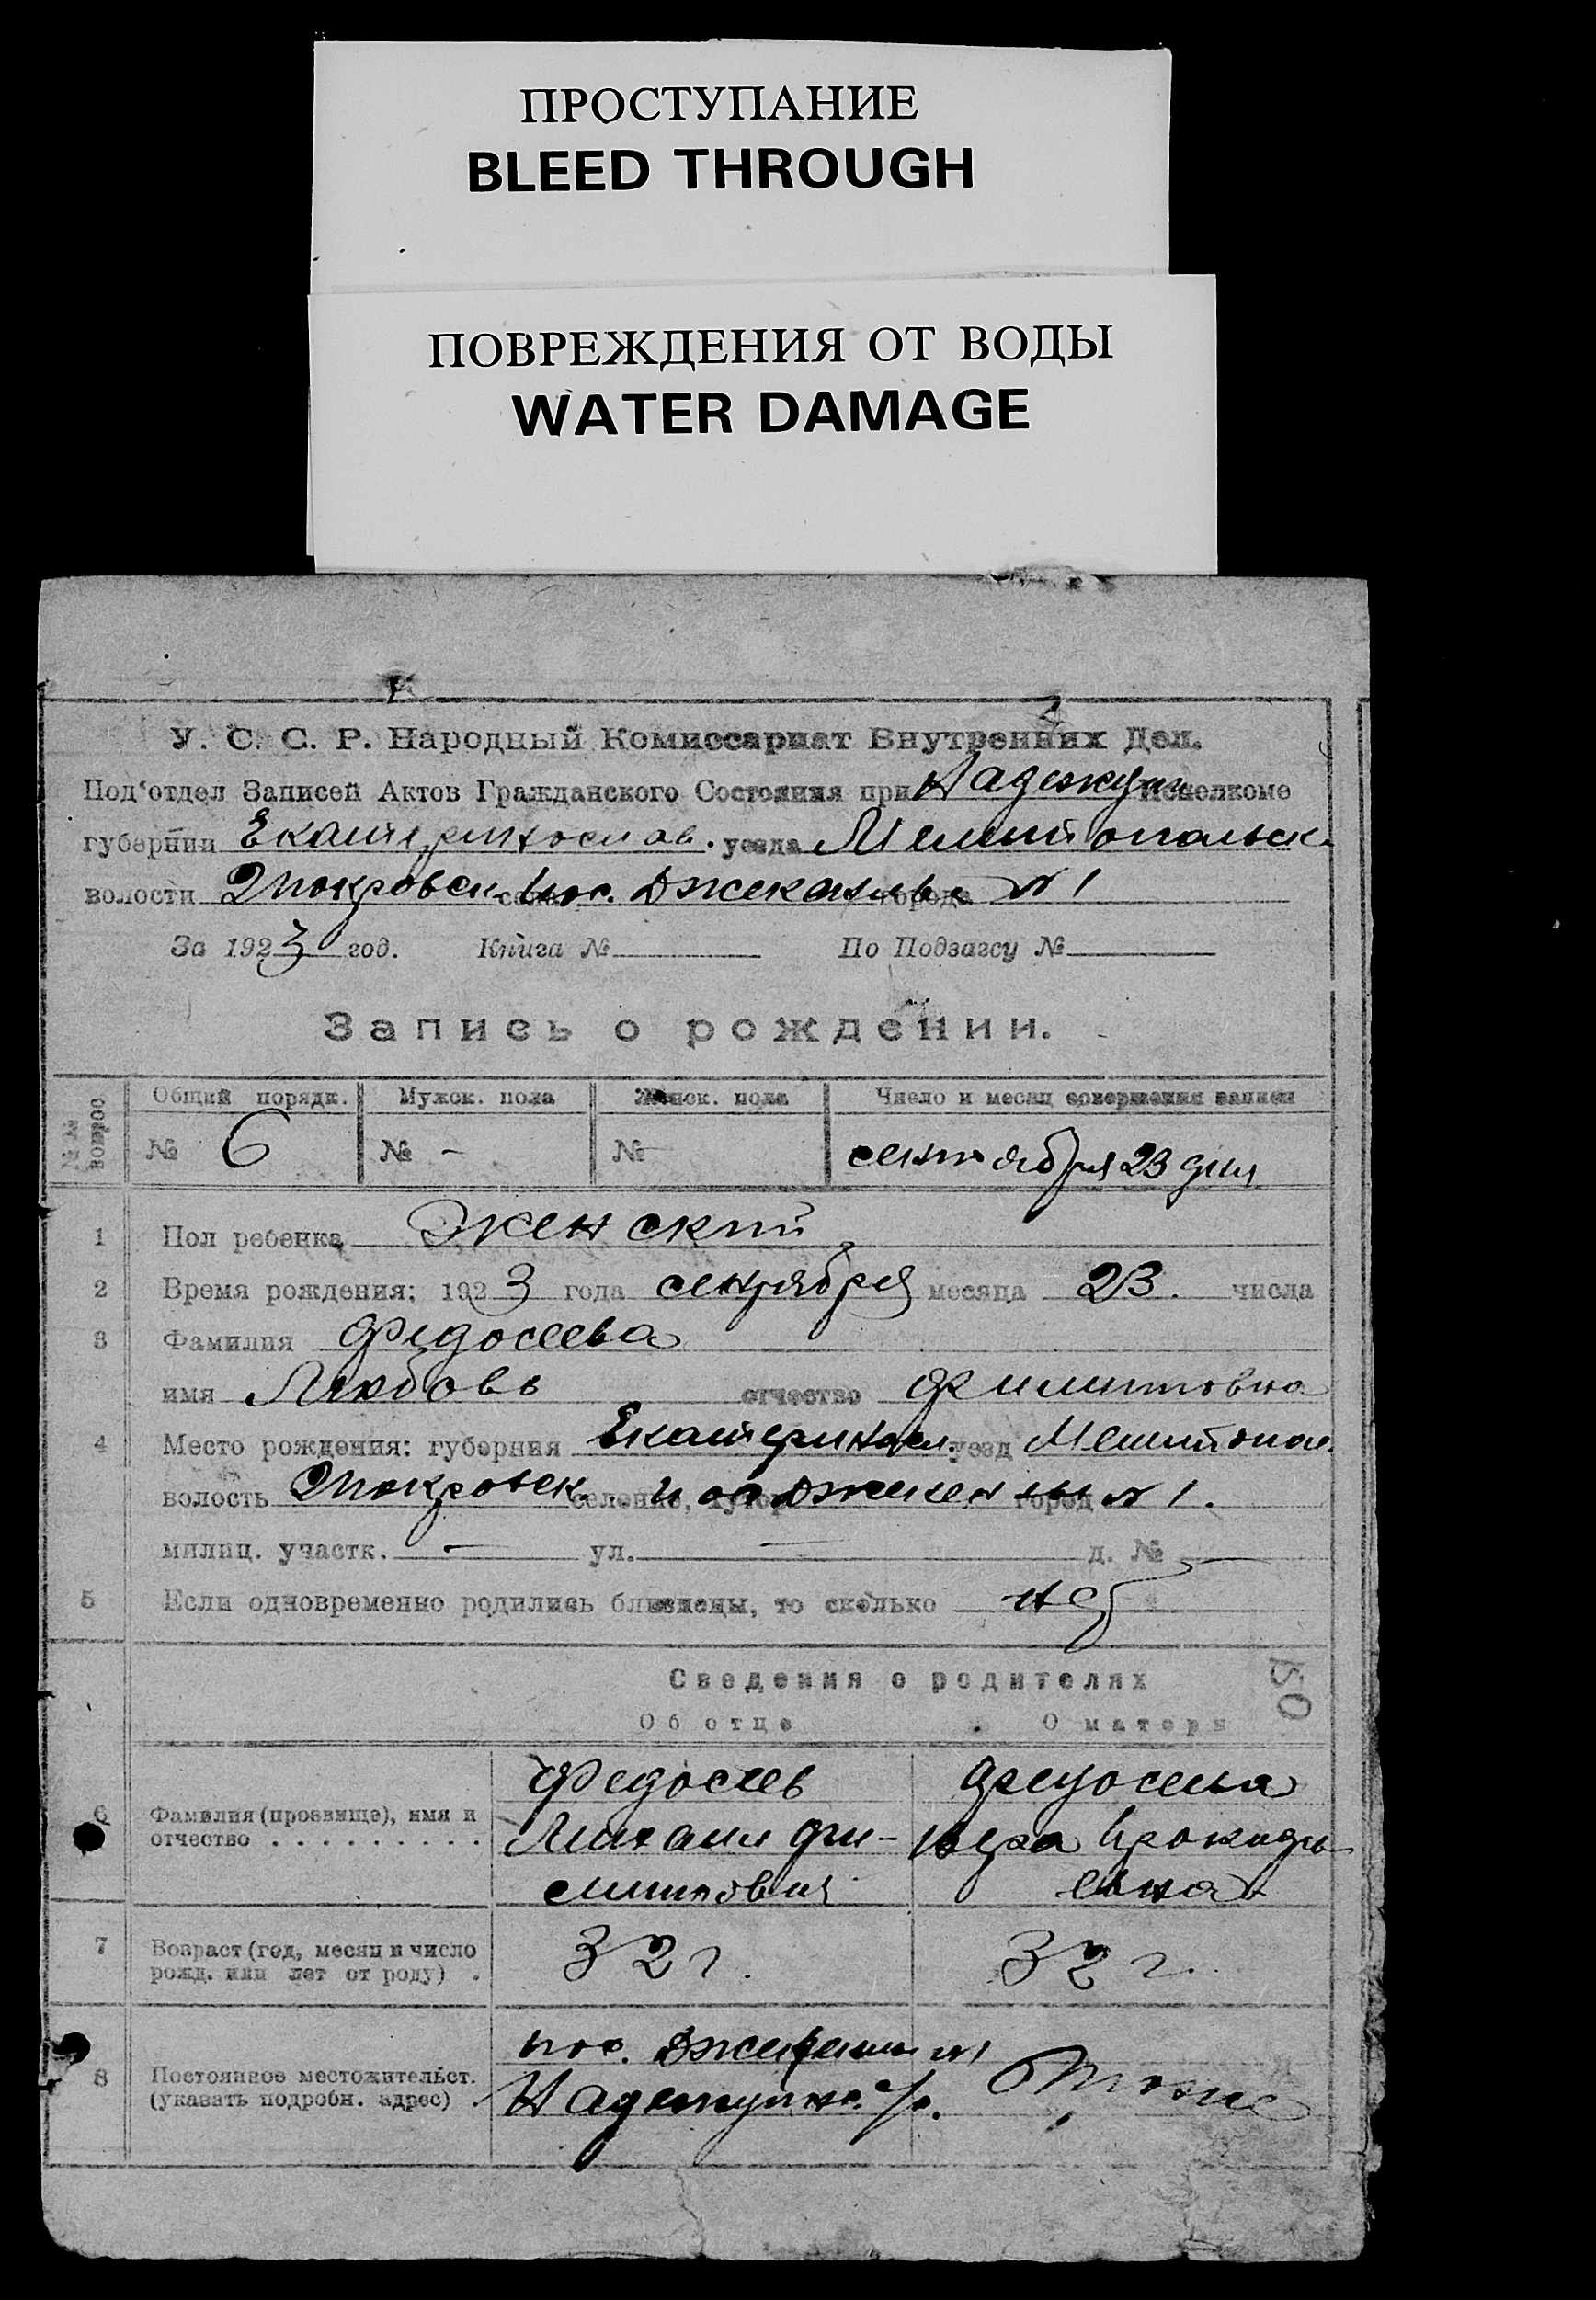 ПРОСТУПАНИЕ
BLEED THROUGH
ПОВРЕЖДЕНИЯ ОТ ВОДЫ
WATER DAMAGE
У. С. С. Р. Народный Комиссариат Внутренних Дел.
Под'отдел Записей Актов Гражданского Состояния при Исполкоме
губернии Екатеринослав. уезда Мелитопольск.
волости Покровск. пос. города № 1
За 1923 год. Книга № По Подзагсу №
Запись о рождении.
№№ вопрос
Общий порядк. Мужск. пола Женск. пола Число и месяц совершения записи
№ 6 № - № сентября 23 дня
1 Пол ребенка Женский
2 Время рождения: 1923 года сентября месяца 23. числа
3 Фамилия Федосеева
имя Любовь отчество
4 Место рождения: губерния Екатериносл. уезд Мелитопол.
волость Покровск. селение, хутор город № 1.
милиц. участк. — ул. — д. № —
5 Если одновременно родились близнецы, то сколько нет
Сведения о родителях
50
Об отце О матери
Федосеев Федосеева
6 Фамилия (прозвище), имя и
отчество . . . . . . . . .
Михаил Фи- Вера
липпович евна
7 Возраст (год, месяц и число
рожд. или лет от роду) .
32 г. 32 г.
пос. №1
8 Постоянное местожительст.
(указать подробн. адрес) .
тоже